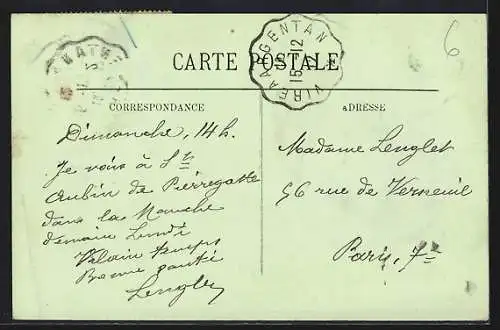 VIRE A ARGENTAN
15-12
CARTE POSTALE
CORRESPONDANCE
ADRESSE
6
Dimanche, 14 h.
Je vais à St
Aubin de
dans la Manche
demain Lundi
Vilain temps
Bonne santé
Lenglet
Madame Lenglet
56 rue de Verneuil
Paris, 7e